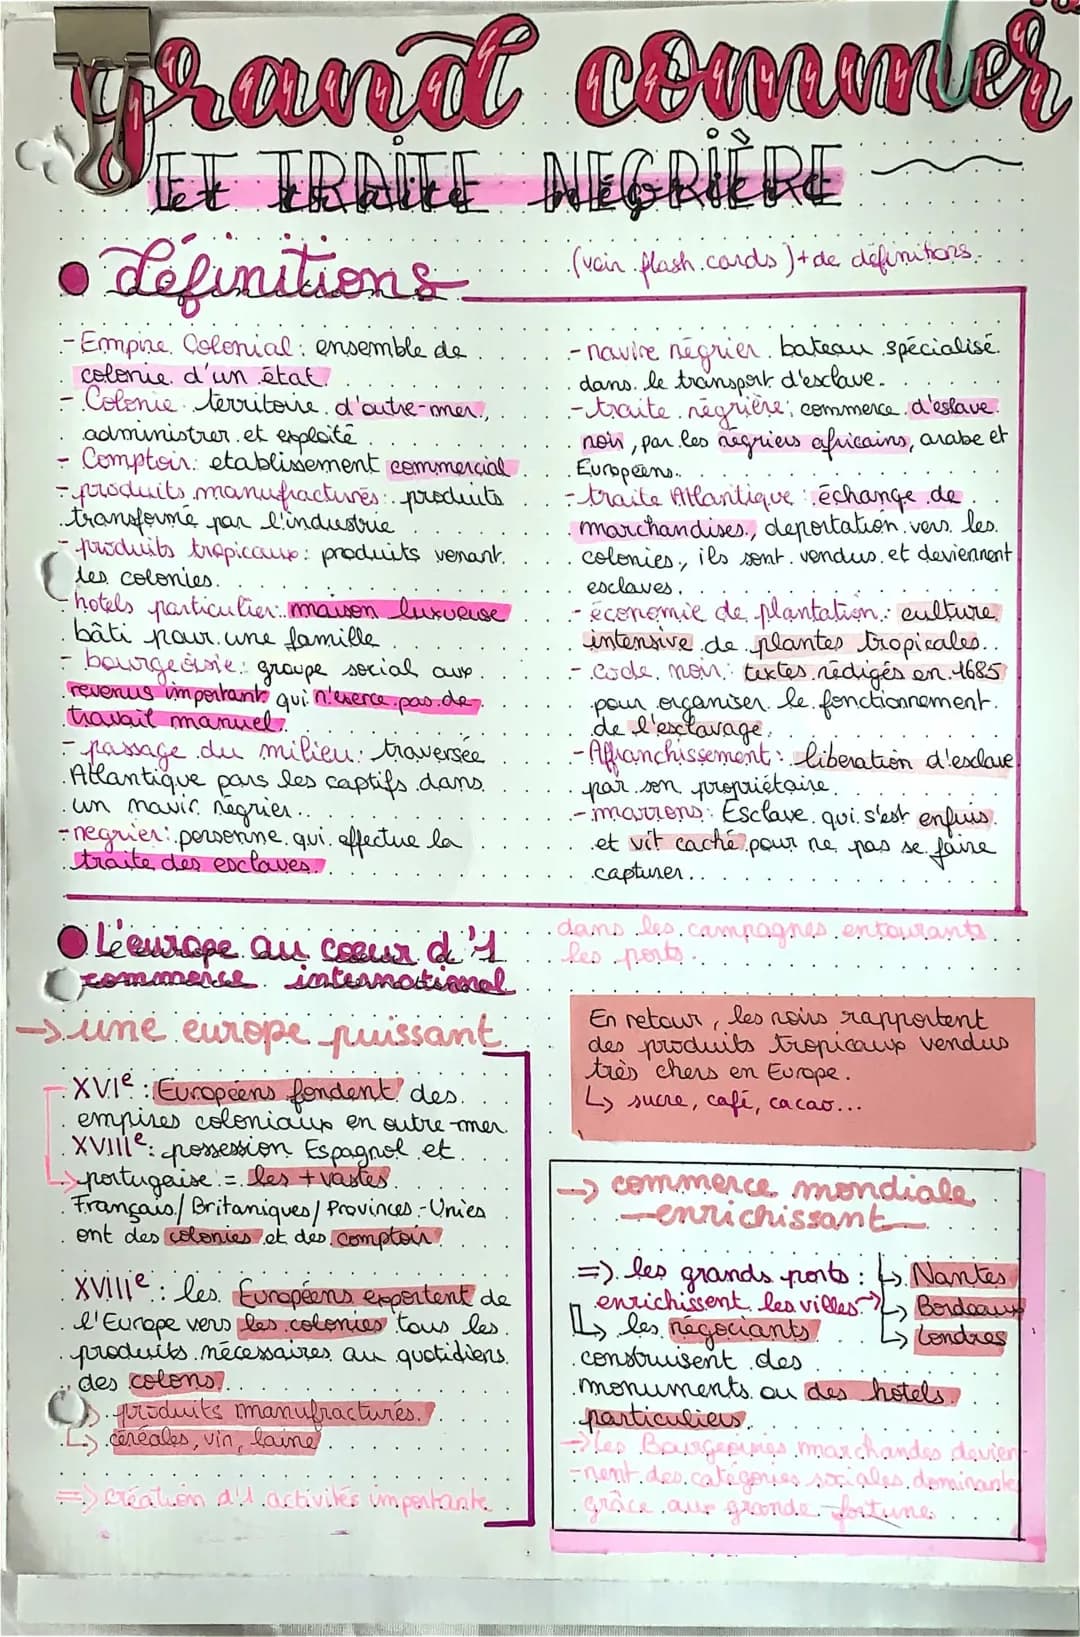 grand commer
ET TRAITE NEGRIÈRE
• définitions
(voir flash cards)+de définitions.
- Empire Colonial: ensemble de
colonie d'un état.
- Colonie territoire d'outre-mer,
administrer et exploité
- Comptoir: etablissement commercial
- produits manufacturés: produits
transformé par l'industrie
- produits tropicaux: produits venant
des colonies.
- hotels particulier: maison luxueuse
bâti pour une famille
- bourgeoisie: groupe social aux
revenus important qui n'exerce pas de
travail manuel.
- passage du milieu: traversée
Atlantique pars les captifs dans
un navir négrier..
- negrier: personne qui effectue la
traite des esclaves.
- navire négrier. bateau spécialisé
dans le transport d'esclave.
- traite négrière: commerce d'eslave
noir, par les négriers africains, arabe et
Européens.
- traite Atlantique: échange de
marchandises, deportation vers les
colonies, ils sont vendus et deviennent
esclaves.
- économie de plantation: culture
intensive de plantes tropicales..
- code noir: textes rédigés en 1685
pour organiser le fonctionnement
de l'esclavage.
- Affranchissement: liberation d'esclave
par son propriétaire.
- marrons: Esclave qui s'est enfuis
et vit caché pour ne pas se faire
capturer..
• L'europe au coeur d'1
commerce international
-> une europe puissant
XVIe: Européens fondent des
empires coloniaux en outre-mer
XVIIIe: possession Espagnol et
-> portugaise = les + vastes.
Français/ Britaniques/ Provinces-Unies
ont des colonies et des comptoir
XVIIIe: les Européens exportent de
l'Europe vers les colonies tous les
produits nécessaires au quotidiens
des colons.
-> produits manufacturés.
-> céréales, vin, laine
=> création d'1 activités importante
dans les campagnes entourants
les ports.
En retour, les noirs rapportent
des produits tropicaux vendus
très chers en Europe.
↳ sucre, café, cacao...
-> commerce mondiale
enrichissant
=> les grands ports: ↳ Nantes
enrichissent les villes -> ↳ Bordeaux
↳ les négociants ↳ Londres
construisent des
monuments ou des hotels
particuliers.
-> les Bourgeoisies marchandes devien-
-nent des catégories sociales dominante
grâce aux grande fortune.